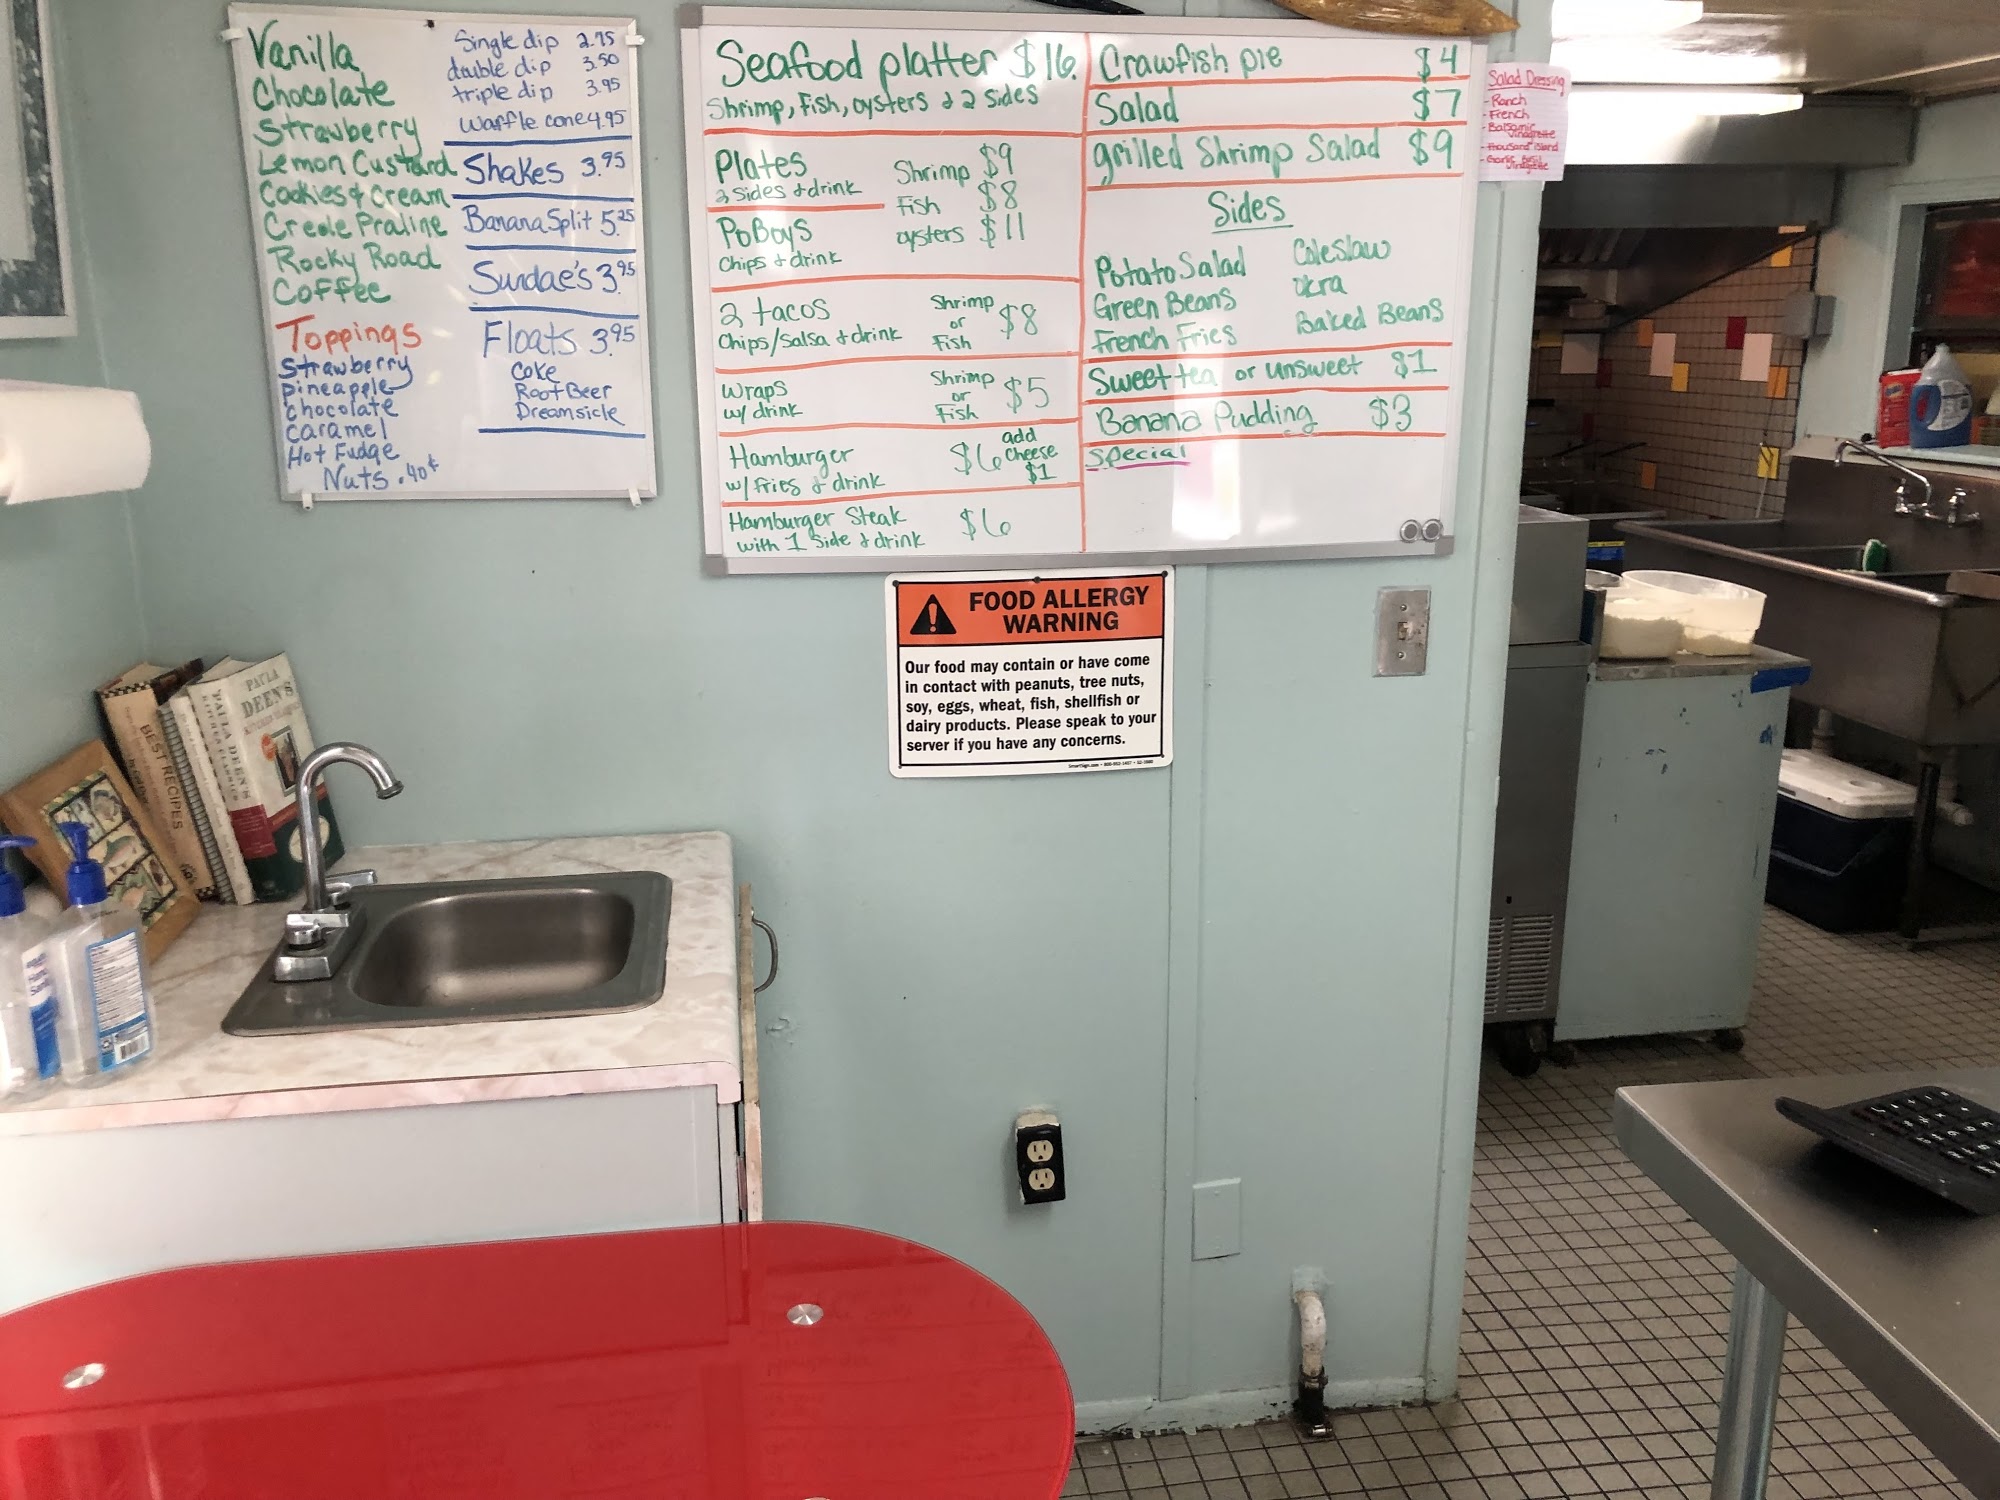 Vanilla
Chocolate
Strawberry
Lemon Custard
Cookies & Cream
Creole Praline
Rocky Road
Coffee
Toppings
Strawberry
pineapple
chocolate
caramel
Hot Fudge
Nuts .40¢
Single dip 2.75
double dip 3.50
triple dip 3.95
Waffle cone 4.95
Shakes 3.95
Banana Split 5.25
Sundae's 3.95
Floats 3.95
Coke
Root Beer
Dreamsicle
Seafood platter $16.
Shrimp, Fish, oysters & 2 sides
Plates
2 sides & drink
PoBoys
Chips & drink
Shrimp $9
Fish $8
oysters $11
2 tacos
Chips/Salsa & drink
Shrimp
or
Fish
$8
Wraps
w/ drink
Shrimp
or
Fish
$5
Hamburger
w/ fries & drink
$6
add
cheese
$1
Hamburger Steak
with 1 side & drink
$6
Crawfish pie $4
Salad $7
grilled Shrimp Salad $9
Sides
Potato Salad
Green Beans
French Fries
Coleslaw
okra
Baked Beans
Sweet tea or unsweet $1
Banana Pudding $3
Special
Salad Dressing
- Ranch
- French
- Balsamic
Vinagrette
- thousand island
- Garlic Basil
Vinagrette
FOOD ALLERGY
WARNING
Our food may contain or have come
in contact with peanuts, tree nuts,
soy, eggs, wheat, fish, shellfish or
dairy products. Please speak to your
server if you have any concerns.
BEST RECIPES
PAULA DEEN'S
KITCHEN CLASSICS
PAULA
DEEN'S